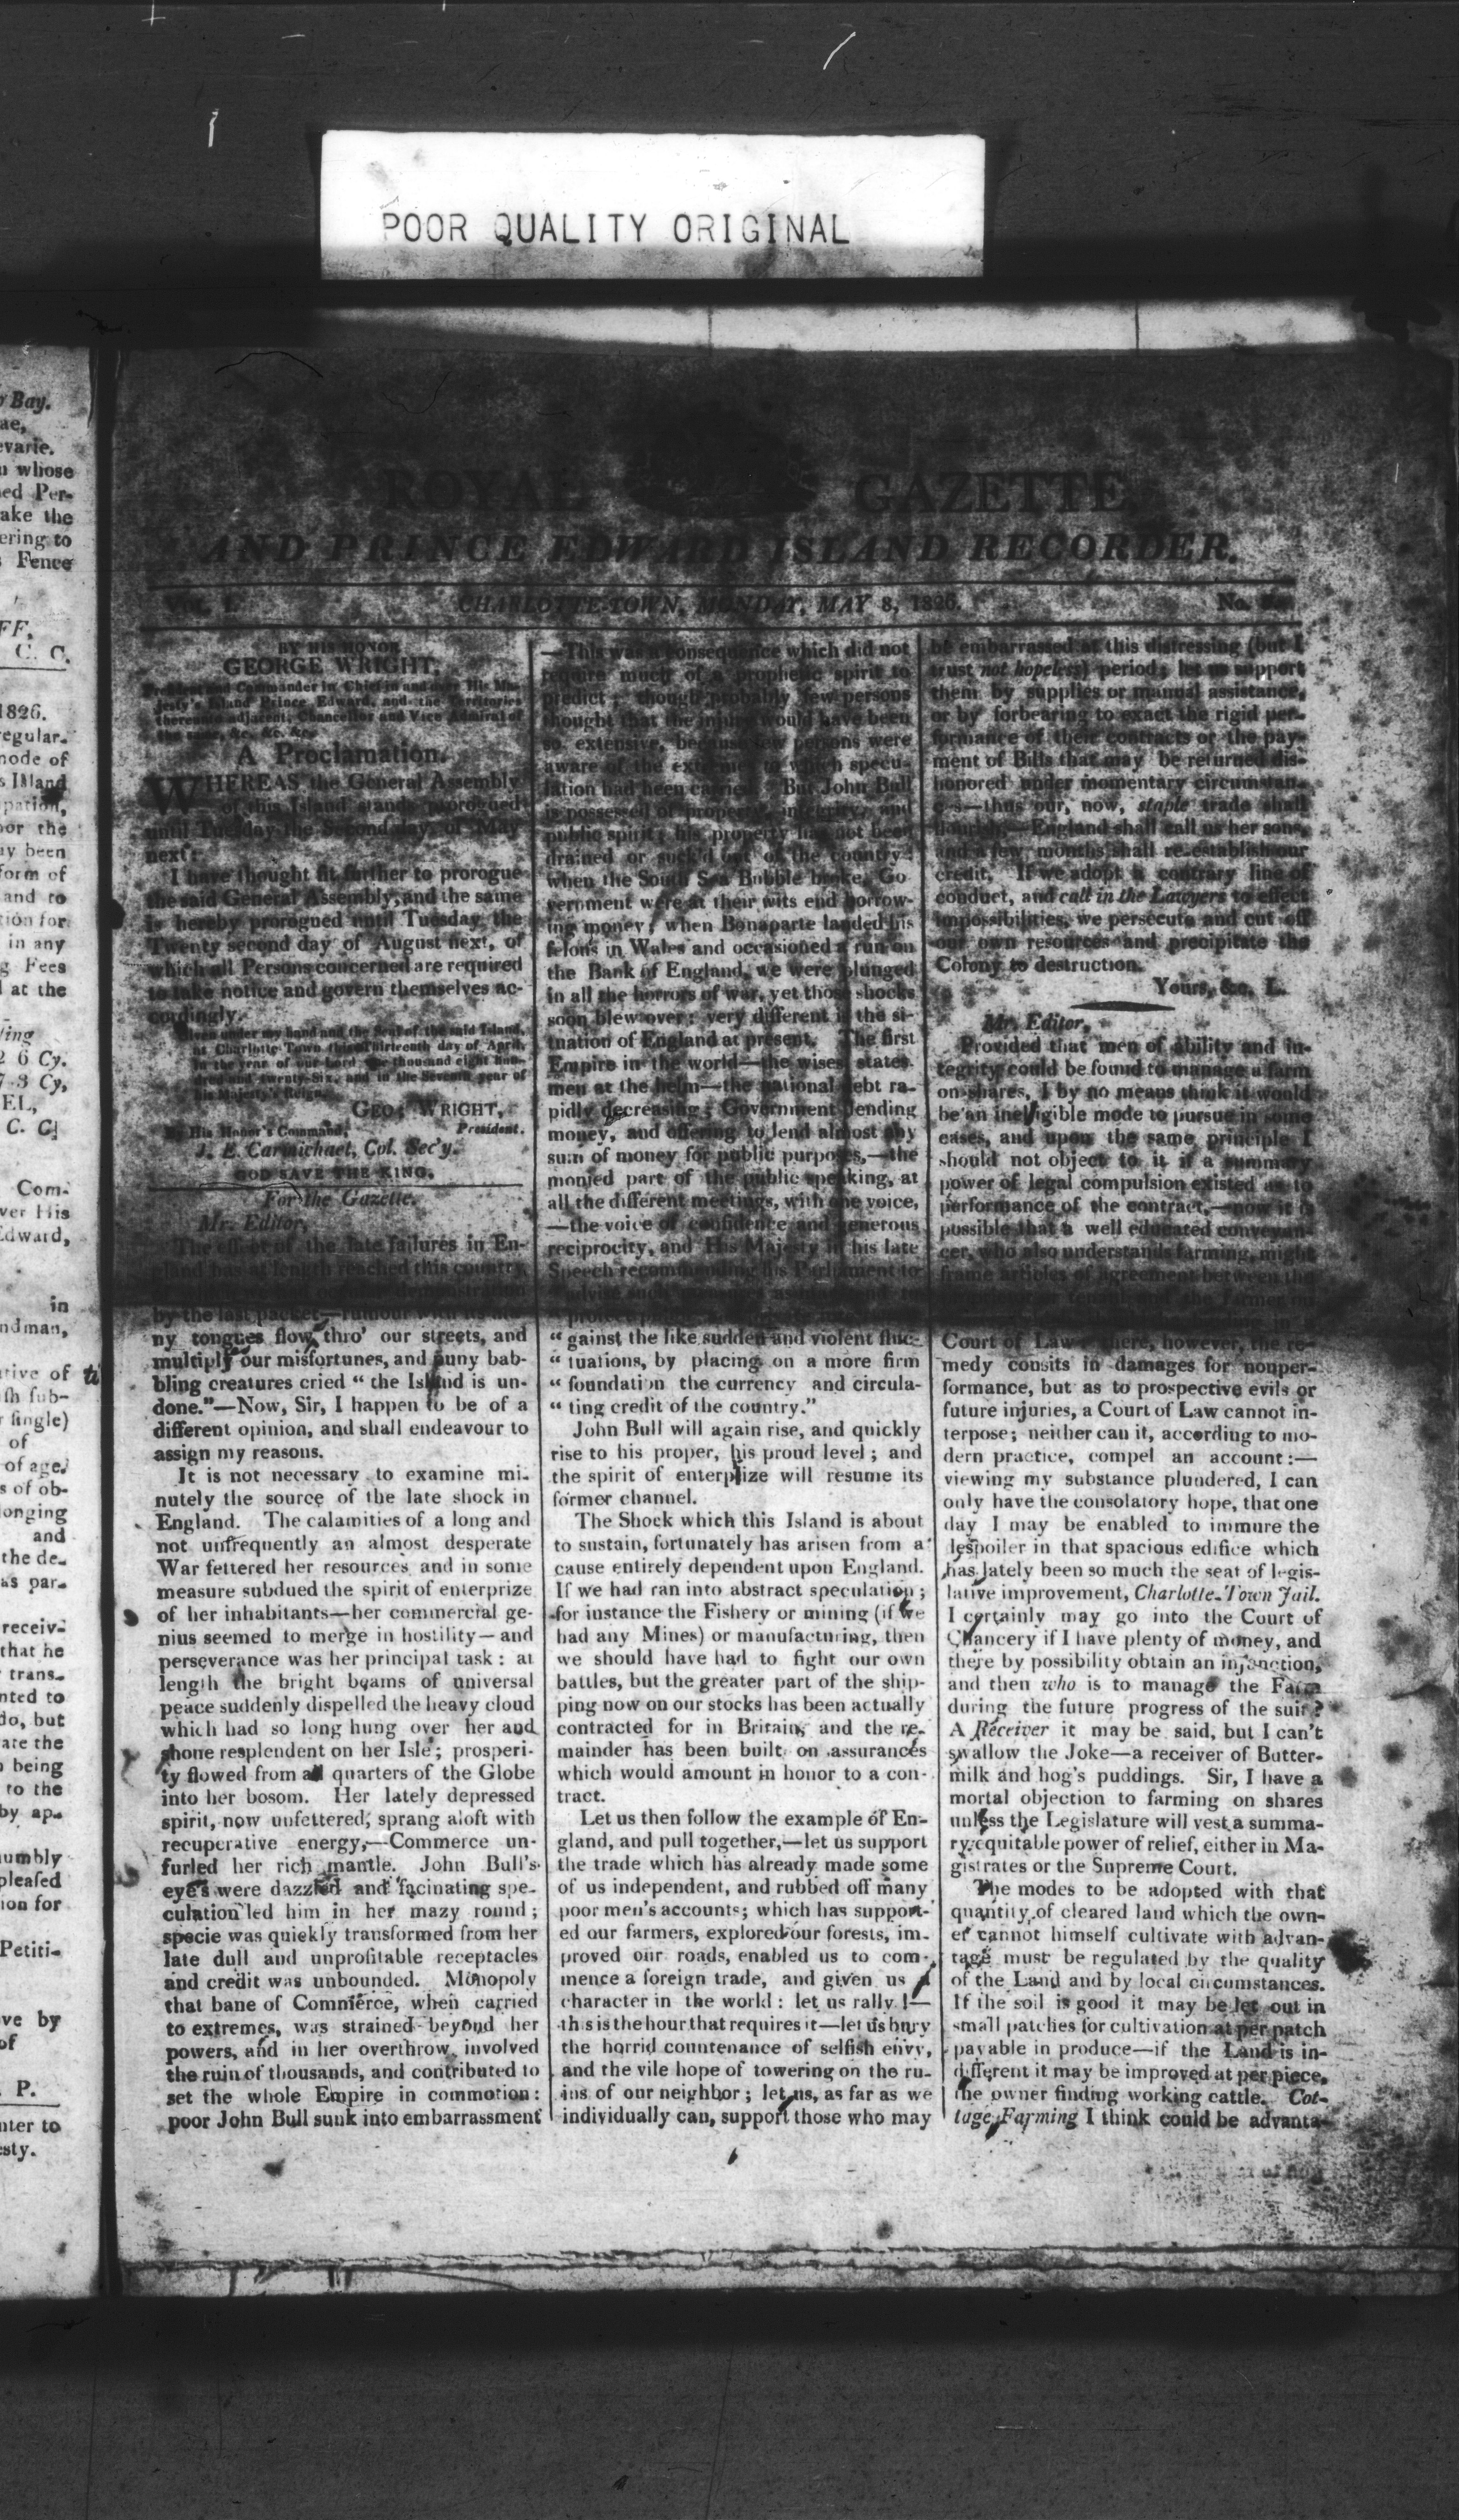 POOR QUALITY ORIGINAL
Bay.
ae,
evarie.
whose
ed Per-
ake the
ering to
Fence
FF,
C. C.
1826.
egular-
node of
s Island
pation,
oor the
ay been
form of
and to
tion for
in any
g Fees
at the
2 6 Cy.
7 3 Cy,
EL,
C. C.
Com-
ver His
Edward,
in
ndman,
tive of
ish sub-
single)
of
of age.
s of ob-
longing
and
the de-
as par-
receiv-
that he
trans-
nted to
do, but
ate the
being
to the
by ap-
umbly
pleased
ion for
Petiti-
ve by
of
P.
nter to
esty.
ROYAL GAZETTE
AND PRINCE EDWARD ISLAND RECORDER.
VOL. I. CHARLOTTE-TOWN, MONDAY, MAY 8, 1826. No.
BY HIS HONOR
GEORGE WRIGHT,
President and Commander in Chief in and over His Ma-
jesty's Island Prince Edward, and the Territories
thereunto adjacent, Chancellor and Vice Admiral of
the same, &c. &c. &c.
A Proclamation.
WHEREAS the General Assembly
of this Island stands prorogued
until Tuesday the Second day of May
next:
I have thought fit further to prorogue
the said General Assembly, and the same
is hereby prorogued until Tuesday the
Twenty second day of August next, of
which all Persons concerned are required
to take notice and govern themselves ac-
cordingly.
Given under my hand and the Seal of the said Island,
at Charlotte Town this Thirteenth day of April,
in the year of our Lord one thousand eight hun-
dred and twenty-Six, and in the Seventh year of
his Majesty's Reign.
GEO: WRIGHT,
President.
By His Honor's Command,
J. E. Carmichael, Col. Sec'y.
GOD SAVE THE KING.
For the Gazette.
Mr. Editor,
The effect of the late failures in En-
gland has at length reached this country,
demonstration
by the last packet—rumour with its
ny tongues flow thro' our streets, and
multiply our misfortunes, and puny bab-
bling creatures cried " the Island is un-
done."—Now, Sir, I happen to be of a
different opinion, and shall endeavour to
assign my reasons.
It is not necessary to examine mi-
nutely the source of the late shock in
England. The calamities of a long and
not unfrequently an almost desperate
War fettered her resources and in some
measure subdued the spirit of enterprize
of her inhabitants—her commercial ge-
nius seemed to merge in hostility—and
perseverance was her principal task: at
length the bright beams of universal
peace suddenly dispelled the heavy cloud
which had so long hung over her and
shone resplendent on her Isle; prosperi-
ty flowed from all quarters of the Globe
into her bosom. Her lately depressed
spirit, now unfettered, sprang aloft with
recuperative energy,—Commerce un-
furled her rich mantle. John Bull's
eyes were dazzled and facinating spe-
culation led him in her mazy round;
specie was quickly transformed from her
late dull and unprofitable receptacles
and credit was unbounded. Monopoly
that bane of Commerce, when carried
to extremes, was strained beyond her
powers, and in her overthrow involved
the ruin of thousands, and contributed to
set the whole Empire in commotion:
poor John Bull sunk into embarrassment
—This was a consequence which did not
require much of a prophetic spirit to
predict; though probably few persons
thought that the injury would have been
so extensive, because few persons were
aware of the extremes to which specu-
lation had been carried. But John Bull
is possessed of property, integrity, and
public spirit; his property has not been
drained or suck'd out of the country
when the South Sea Bubble broke, Go-
vernment were at their wits end borrow-
ing money; when Bonaparte landed his
felons in Wales and occasioned a run on
the Bank of England, we were plunged
in all the horrors of war, yet those shocks
soon blew over: very different is the si-
tuation of England at present. The first
Empire in the world—the wisest states-
men at the helm—the national debt ra-
pidly decreasing; Government lending
money, and offering to lend almost any
sum of money for public purposes,—the
monied part of the public speaking, at
all the different meetings, with one voice,
—the voice of confidence and generous
reciprocity, and His Majesty in his late
Speech recommending his Parliament to
" gainst the like sudden and violent fluc-
" tuations, by placing on a more firm
" foundation the currency and circula-
" ting credit of the country."
John Bull will again rise, and quickly
rise to his proper, his proud level; and
the spirit of enterprize will resume its
former channel.
The Shock which this Island is about
to sustain, fortunately has arisen from a
cause entirely dependent upon England.
If we had ran into abstract speculation;
for instance the Fishery or mining (if we
had any Mines) or manufacturing, then
we should have had to fight our own
battles, but the greater part of the ship-
ping now on our stocks has been actually
contracted for in Britain, and the re-
mainder has been built on assurances
which would amount in honor to a con-
tract.
Let us then follow the example of En-
gland, and pull together,—let us support
the trade which has already made some
of us independent, and rubbed off many
poor men's accounts; which has support-
ed our farmers, explored our forests, im-
proved our roads, enabled us to com-
mence a foreign trade, and given us a
character in the world: let us rally!—
this is the hour that requires it—let us bury
the horrid countenance of selfish envy,
and the vile hope of towering on the ru-
ins of our neighbor; let us, as far as we
individually can, support those who may
be embarrassed at this distressing (but I
trust not hopeless) period; let us support
them by supplies or manual assistance,
or by forbearing to exact the rigid per-
formance of their contracts or the pay-
ment of Bills that may be returned dis-
honored under momentary circumstan-
ces—thus our, now, staple trade shall
flourish,—England shall call us her sons,
and a few months shall re-establish our
credit. If we adopt a contrary line of
conduct, and call in the Lawyers to effect
impossibilities, we persecute and cut off
our own resources and precipitate the
Colony to destruction.
Yours, &c. L.
Mr. Editor,
Provided that men of ability and in-
tegrity could be found to manage a farm
on shares, I by no means think it would
be an ineligible mode to pursue in some
cases, and upon the same principle I
should not object to it if a summary
power of legal compulsion existed as to
performance of the contract,—now it is
possible that a well educated conveyan-
cer, who also understands farming, might
frame articles of agreement between the
Court of Law—there, however, the re-
medy consits in damages for nonper-
formance, but as to prospective evils or
future injuries, a Court of Law cannot in-
terpose; neither can it, according to mo-
dern practice, compel an account:—
viewing my substance plundered, I can
only have the consolatory hope, that one
day I may be enabled to immure the
despoiler in that spacious edifice which
has lately been so much the seat of legis-
lative improvement, Charlotte-Town Jail.
I certainly may go into the Court of
Chancery if I have plenty of money, and
there by possibility obtain an injunction,
and then who is to manage the Farm
during the future progress of the suit?
A Receiver it may be said, but I can't
swallow the Joke—a receiver of Butter-
milk and hog's puddings. Sir, I have a
mortal objection to farming on shares
unless the Legislature will vest a summa-
ry equitable power of relief, either in Ma-
gistrates or the Supreme Court.
The modes to be adopted with that
quantity of cleared land which the own-
er cannot himself cultivate with advan-
tage must be regulated by the quality
of the Land and by local circumstances.
If the soil is good it may be let out in
small patches for cultivation at per patch
payable in produce—if the Land is in-
different it may be improved at per piece,
the owner finding working cattle. Cot-
tage Farming I think could be advanta-